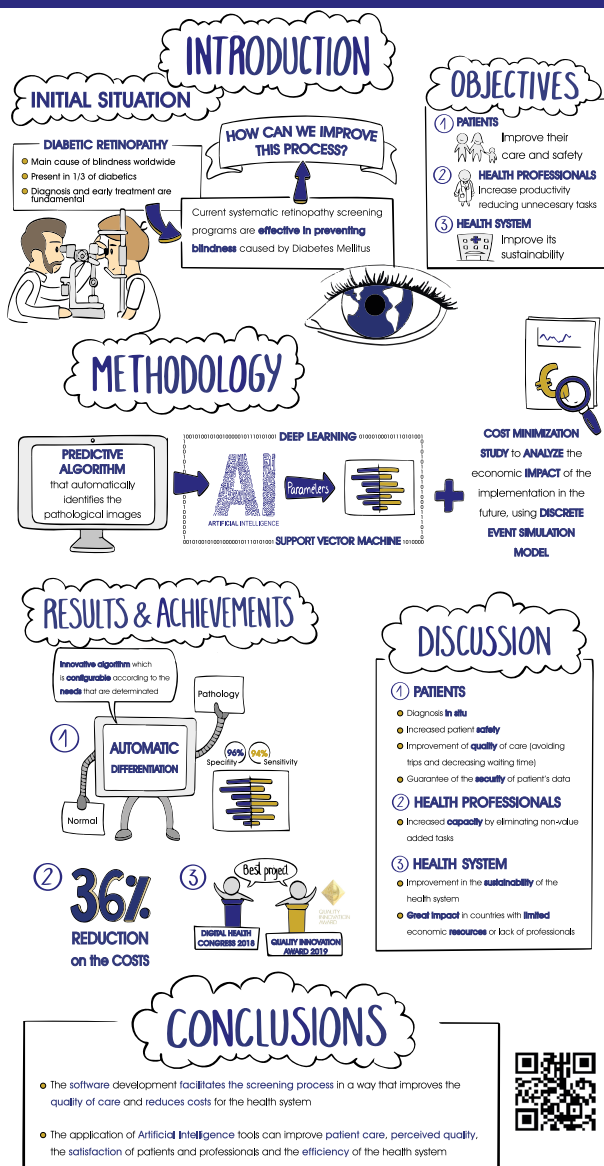 INTRODUCTION
INITIAL SITUATION
DIABETIC RETINOPATHY
Main cause of blindness worldwide
Present in 1/3 of diabetics
Diagnosis and early treatment are
fundamental
HOW CAN WE IMPROVE
THIS PROCESS?
Current systematic retinopathy screening
programs are effective in preventing
blindness caused by Diabetes Mellitus
OBJECTIVES
1 PATIENTS
Improve their
care and safety
2 HEALTH PROFESSIONALS
Increase productivity
reducing unnecesary tasks
3 HEALTH SYSTEM
Improve its
sustainability
METHODOLOGY
PREDICTIVE
ALGORITHM
that automatically
identifies the
pathological images
DEEP LEARNING
AI
ARTIFICIAL INTELLIGENCE
Parameters
SUPPORT VECTOR MACHINE
€
COST MINIMIZATION
STUDY to ANALYZE the
economic IMPACT of the
implementation in the
future, using DISCRETE
EVENT SIMULATION
MODEL
RESULTS & ACHIEVEMENTS
Innovative algorithm which
is configurable according to the
needs that are determinated
1
Pathology
AUTOMATIC
DIFFERENTIATION
Normal
96% 94%
Specifity Sensitivity
2 36%
REDUCTION
on the COSTS
3 Best project
DIGITAL HEALTH
CONGRESS 2018
QUALITY INNOVATION
AWARD 2019
QUALITY
INNOVATION
AWARD
DISCUSSION
1 PATIENTS
Diagnosis in situ
Increased patient safety
Improvement of quality of care (avoiding
trips and decreasing waiting time)
Guarantee of the security of patient's data
2 HEALTH PROFESSIONALS
Increased capacity by eliminating non-value
added tasks
3 HEALTH SYSTEM
Improvement in the sustainability of the
health system
Great impact in countries with limited
economic resources or lack of professionals
CONCLUSIONS
The software development facilitates the screening process in a way that improves the
quality of care and reduces costs for the health system
The application of Artificial Intelligence tools can improve patient care, perceived quality,
the satisfaction of patients and professionals and the efficiency of the health system